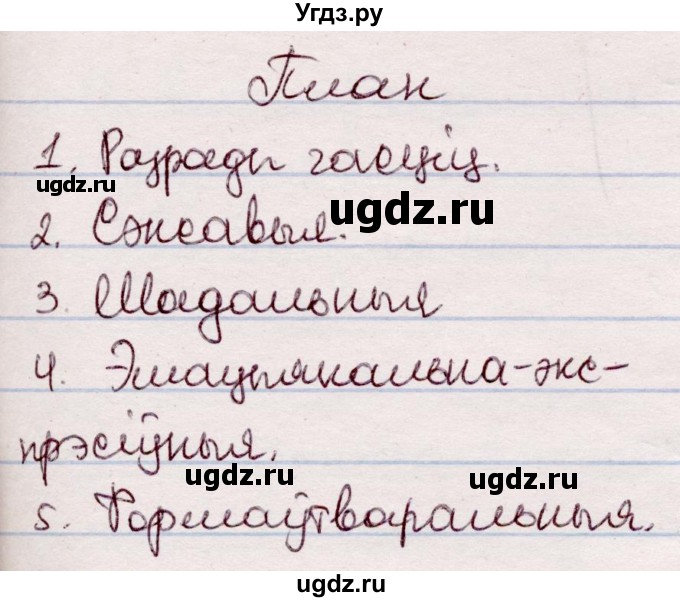 Угдз.ру
План
1. Разряды часціц.
ugdz.ru
ugdz.ru
2. Сэнсавыя.
3. Мадальныя
4. Эмацыянальна-экс-
прэсіўныя.
ugdz.ru
ugdz.ru
5. Формаўтваральныя.
ugdz.ru